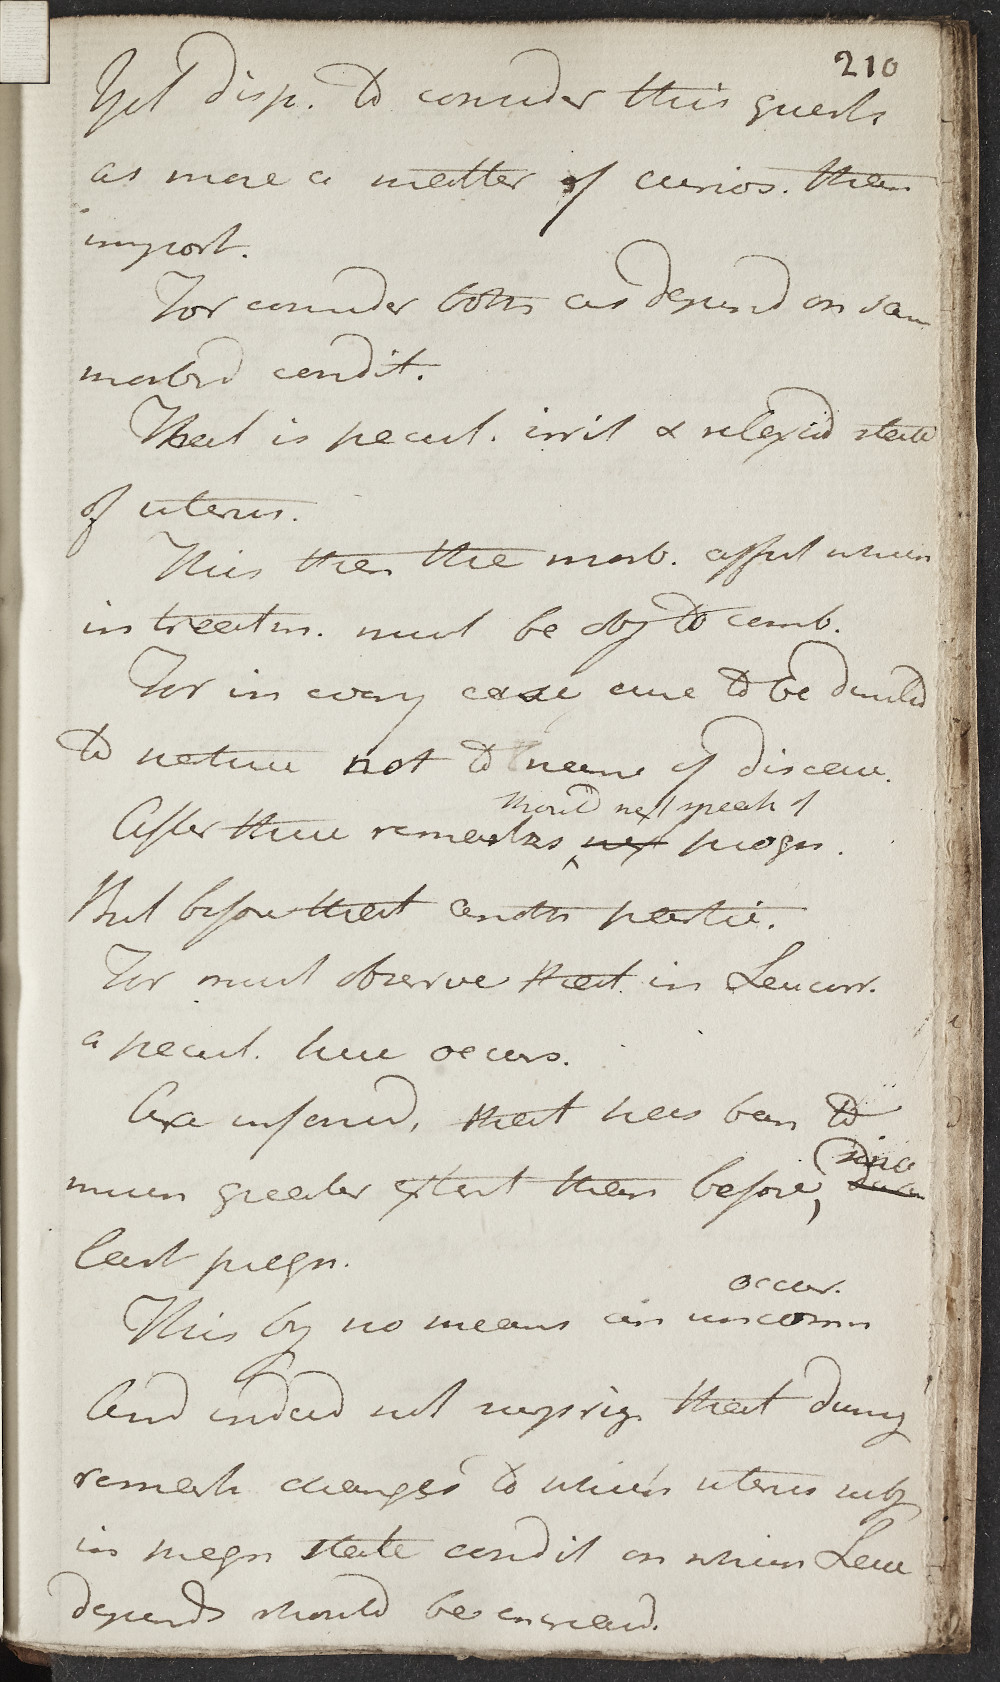 210
Yet disp. to consider this quest.
as more a matter of curios. than
import.
For consider both as depend on sam
morbid condit.
That is pecul. irrit & relaxed state
of uterus.
This then the morb. affect which
in treatm. must be obj to comb.
For in every case cure to be
to nature not to name of disease.
should next speak of
After these remarks nex progn.
But before that anoth partic.
For must observe that in Leucorr.
a pecul. here occurs.
Are informed, that has been to
since
much greater extent than before,
last pregn.
occur.
This by no means an uncomn
And indeed not surprisg. that during
remark changes to which uterus subj
in pregn state condit on which Leuc
depends should be increased.